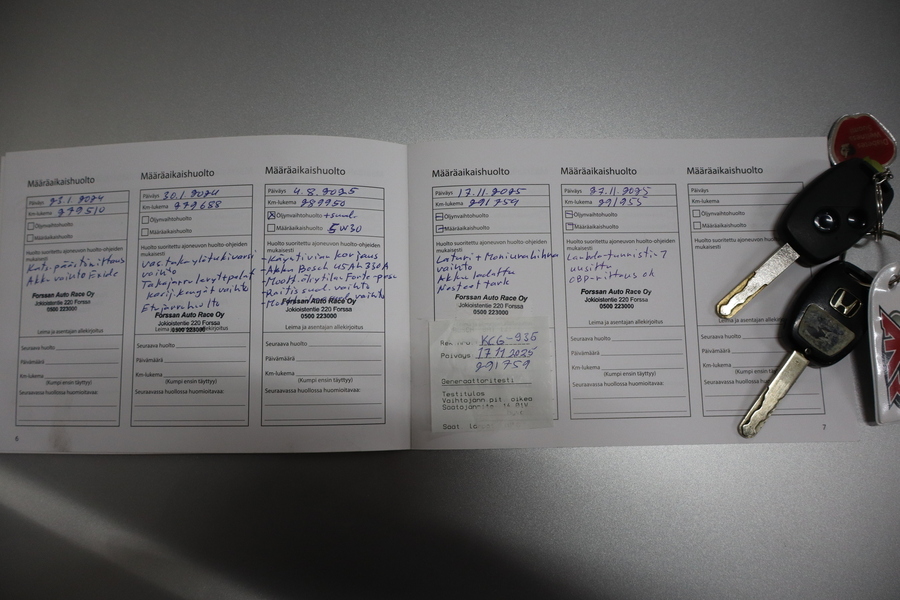 Määräaikaishuolto
Päiväys 23.1.2024
Km-lukema 279510
Öljynvaihtohuolto
Määräaikaishuolto
Huolto suoritettu ajoneuvon huolto-ohjeiden
mukaisesti
Akku vaihto Exide
Forssan Auto Race Oy
Jokioistentie 220 Forssa
0500 223000
Leima ja asentajan allekirjoitus
Seuraava huolto
Päivämäärä
Km-lukema
(Kumpi ensin täyttyy)
Seuraavassa huollossa huomioitavaa:
6
Määräaikaishuolto
Päiväys 30.1.2024
Km-lukema 279688
Öljynvaihtohuolto
Määräaikaishuolto
Huolto suoritettu ajoneuvon huolto-ohjeiden
mukaisesti
vas. taka ylätukivarsi
vaihto
Takajarru levyt palat
vaihto
Etujarruhuolto
Forssan Auto Race Oy
Jokioistentie 220 Forssa
0500 223000
Leima ja asentajan allekirjoitus
Seuraava huolto
Päivämäärä
Km-lukema
(Kumpi ensin täyttyy)
Seuraavassa huollossa huomioitavaa:
Määräaikaishuolto
Päiväys 4.8.2025
Km-lukema 289950
Öljynvaihtohuolto
Määräaikaishuolto 5W30
Huolto suoritettu ajoneuvon huolto-ohjeiden
mukaisesti
-Käyntivian korjaus
-Akku Bosch 45Ah 330A
vaihto
Forssan Auto Race Oy
Jokioistentie 220 Forssa
0500 223000
Leima ja asentajan allekirjoitus
Seuraava huolto
Päivämäärä
Km-lukema
(Kumpi ensin täyttyy)
Seuraavassa huollossa huomioitavaa:
Määräaikaishuolto
Päiväys 17.11.2025
Km-lukema 291759
Öljynvaihtohuolto
Määräaikaishuolto
Huolto suoritettu ajoneuvon huolto-ohjeiden
mukaisesti
Laturi + Moniurahihna
vaihto
Akku ladattu
Nesteet tark
Forssan Auto Race Oy
Jokioistentie 220 Forssa
0500 223000
Rek.nro: KCG-935
Päiväys 17.11.2025
291759
Generaattoritesti
Testitulos
Vaihtojänn.pit. oikea
Määräaikaishuolto
Päiväys 27.11.2025
Km-lukema 291955
Öljynvaihtohuolto
Määräaikaishuolto
Huolto suoritettu ajoneuvon huolto-ohjeiden
mukaisesti
Lambdatunnistin
uusittu
Forssan Auto Race Oy
Jokioistentie 220 Forssa
0500 223000
Leima ja asentajan allekirjoitus
Seuraava huolto
Päivämäärä
Km-lukema
(Kumpi ensin täyttyy)
Seuraavassa huollossa huomioitavaa:
Määräaikaishuolto
Päiväys
Km-lukema
Öljynvaihtohuolto
Määräaikaishuolto
Huolto suoritettu ajoneuvon huolto-ohjeiden
mukaisesti
Leima ja asentajan
Seuraava huolto
Päivämäärä
Km-lukema
(Kumpi ensin
Seuraavassa huollossa huomioitavaa:
7